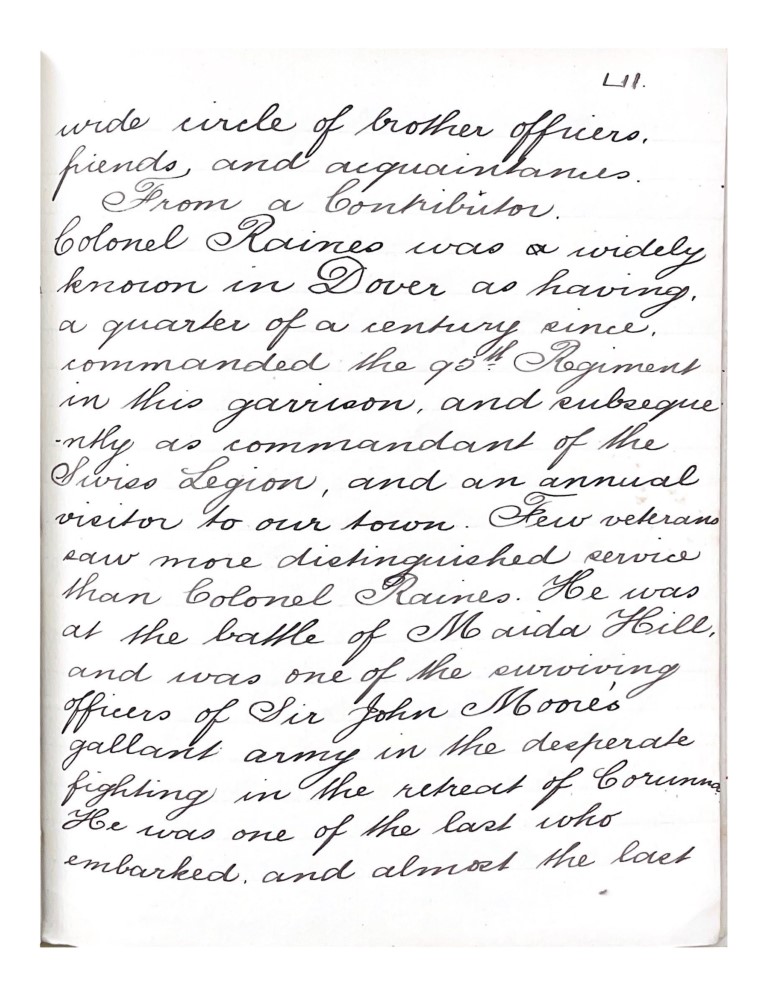 LII.
wide circle of brother officers,
friends, and acquaintances.
From a Contributor.
Colonel Raines was a widely
known in Dover as having,
a quarter of a century since,
commanded the 95th Regiment
in this garrison, and subseque
-ntly as commandant of the
Swiss Legion, and an annual
visitor to our town. Few veterans
saw more distinguished service
than Colonel Raines. He was
at the battle of Maida Hill,
and was one of the surviving
officers of Sir John Moore's
gallant army in the desperate
fighting in the retreat of Corunna.
He was one of the last who
embarked, and almost the last